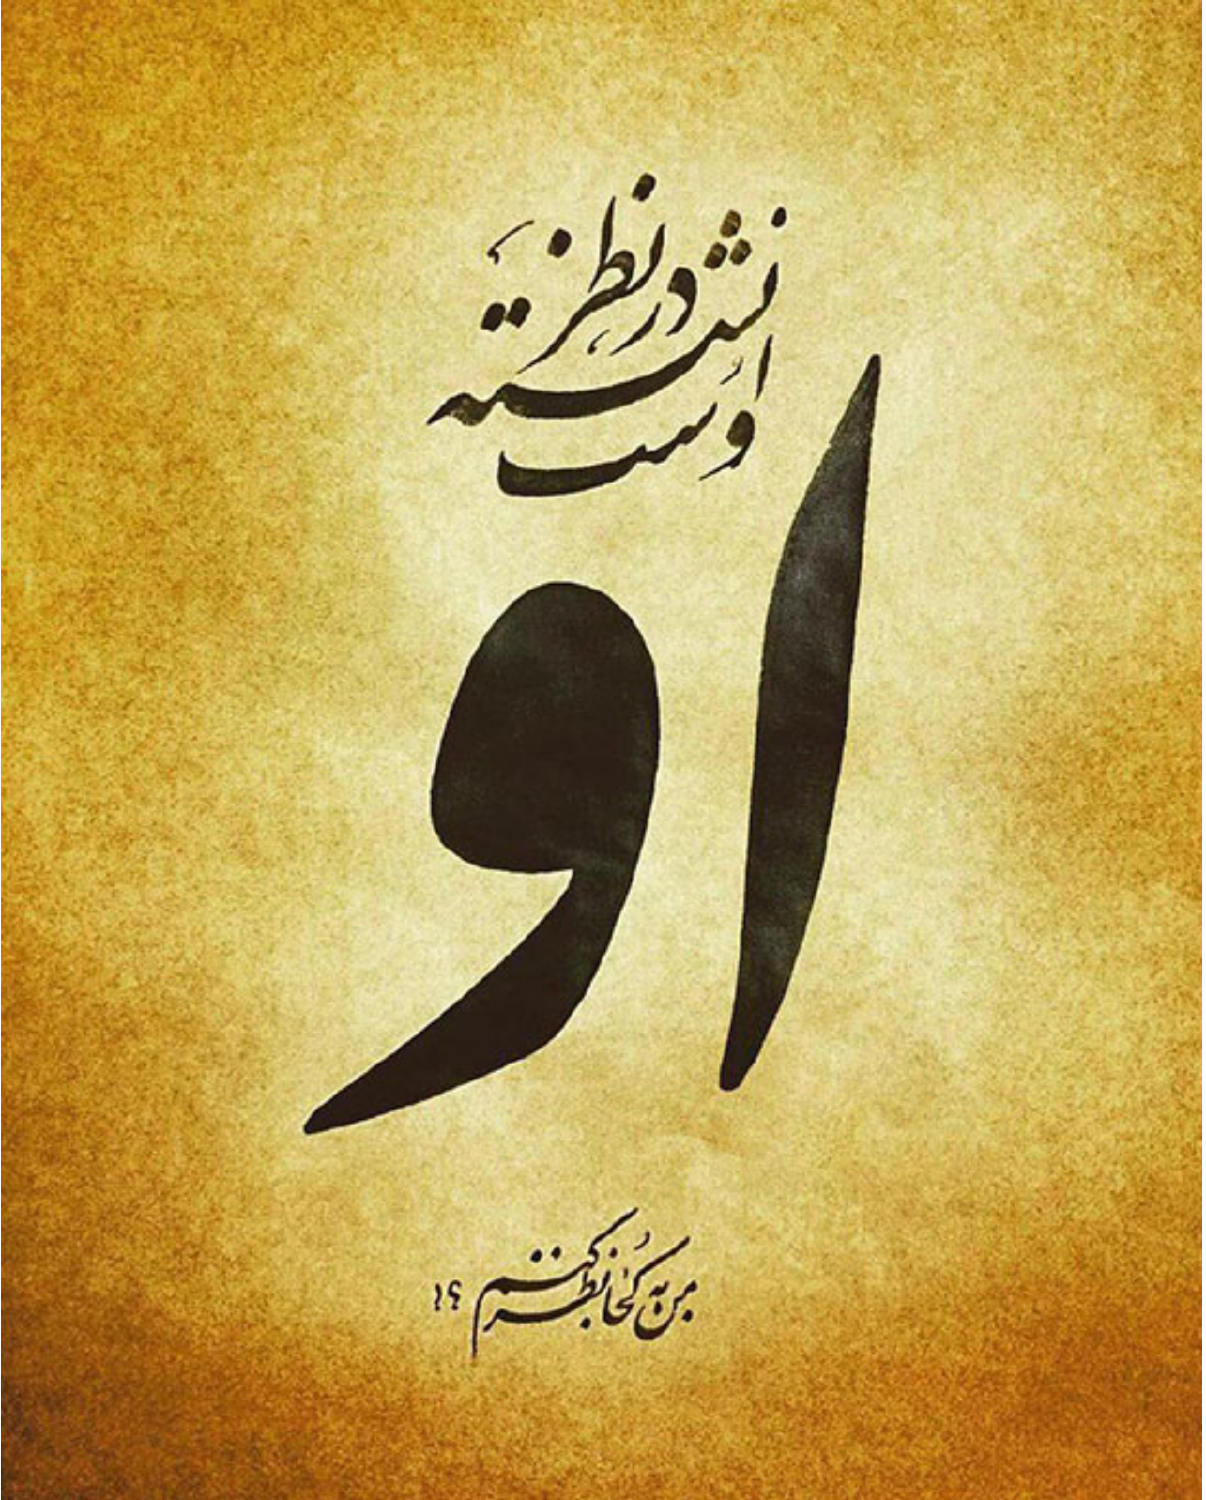 اوست نشسته در نظر
او
من به کجا نظر کنم ؟!